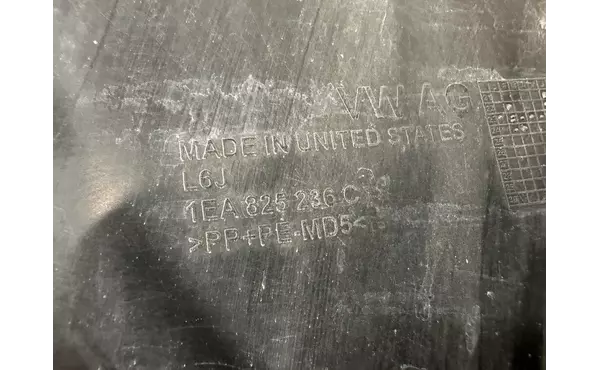 VW AG
MADE IN UNITED STATES
L6J
1EA 825 236 C
>PP+PE-MD5<